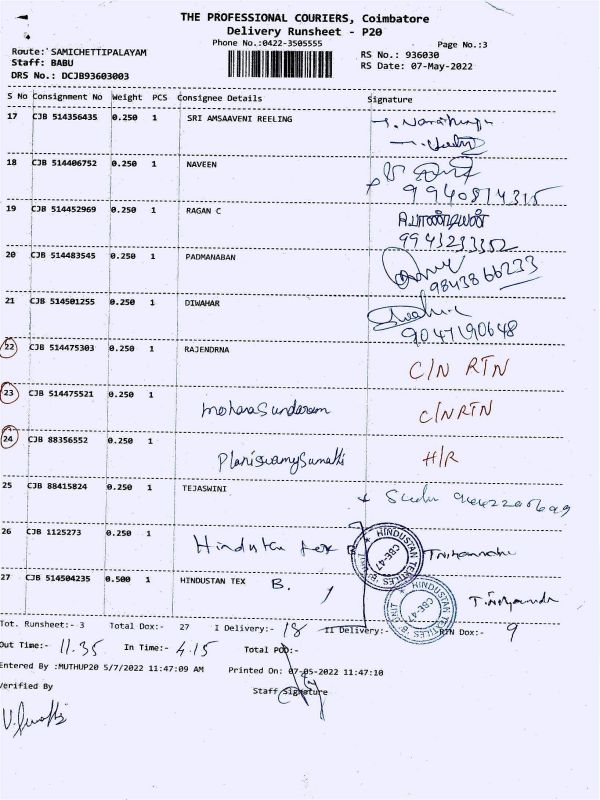 THE PROFESSIONAL COURIERS, Coimbatore
Delivery Runsheet - P20
Phone No.:0422-3505555
Page No.:3
Route: SAMICHETTIPALAYAM
Staff: BABU
DRS No.: DCJB93603003
RS No.: 936030
RS Date: 07-May-2022
S No Consignment No Weight PCS Consignee Details Signature
17 CJB 514356435 0.250 1 SRI AMSAAVENI REELING
18 CJB 514406752 0.250 1 NAVEEN
9940814315
19 CJB 514452969 0.250 1 RAGAN C
9943233352
20 CJB 514483545 0.250 1 PADMANABAN
9843866233
21 CJB 514501255 0.250 1 DIWAHAR
9047190648
22 CJB 514475303 0.250 1 RAJENDRNA C/N RTN
23 CJB 514475521 0.250 1 mohanasundaram C/N RTN
24 CJB 88356552 0.250 1 H/R
25 CJB 88415824 0.250 1 TEJASWINI
26 CJB 1125273 0.250 1 Hindustan tex B
HINDUSTAN TEXTILES 'B' UNIT
CBE-47
27 CJB 514504235 0.500 1 HINDUSTAN TEX B.
HINDUSTAN TEXTILES 'B' UNIT
CBE-47
Tot. Runsheet:- 3 Total Dox:- 27 I Delivery:- 18 II Delivery:- RTN Dox:- 9
Out Time:- 11.35 In Time:- 4.15 Total POD:-
Entered By :MUTHUP20 5/7/2022 11:47:09 AM Printed On: 07-05-2022 11:47:10
Verified By Staff Signature